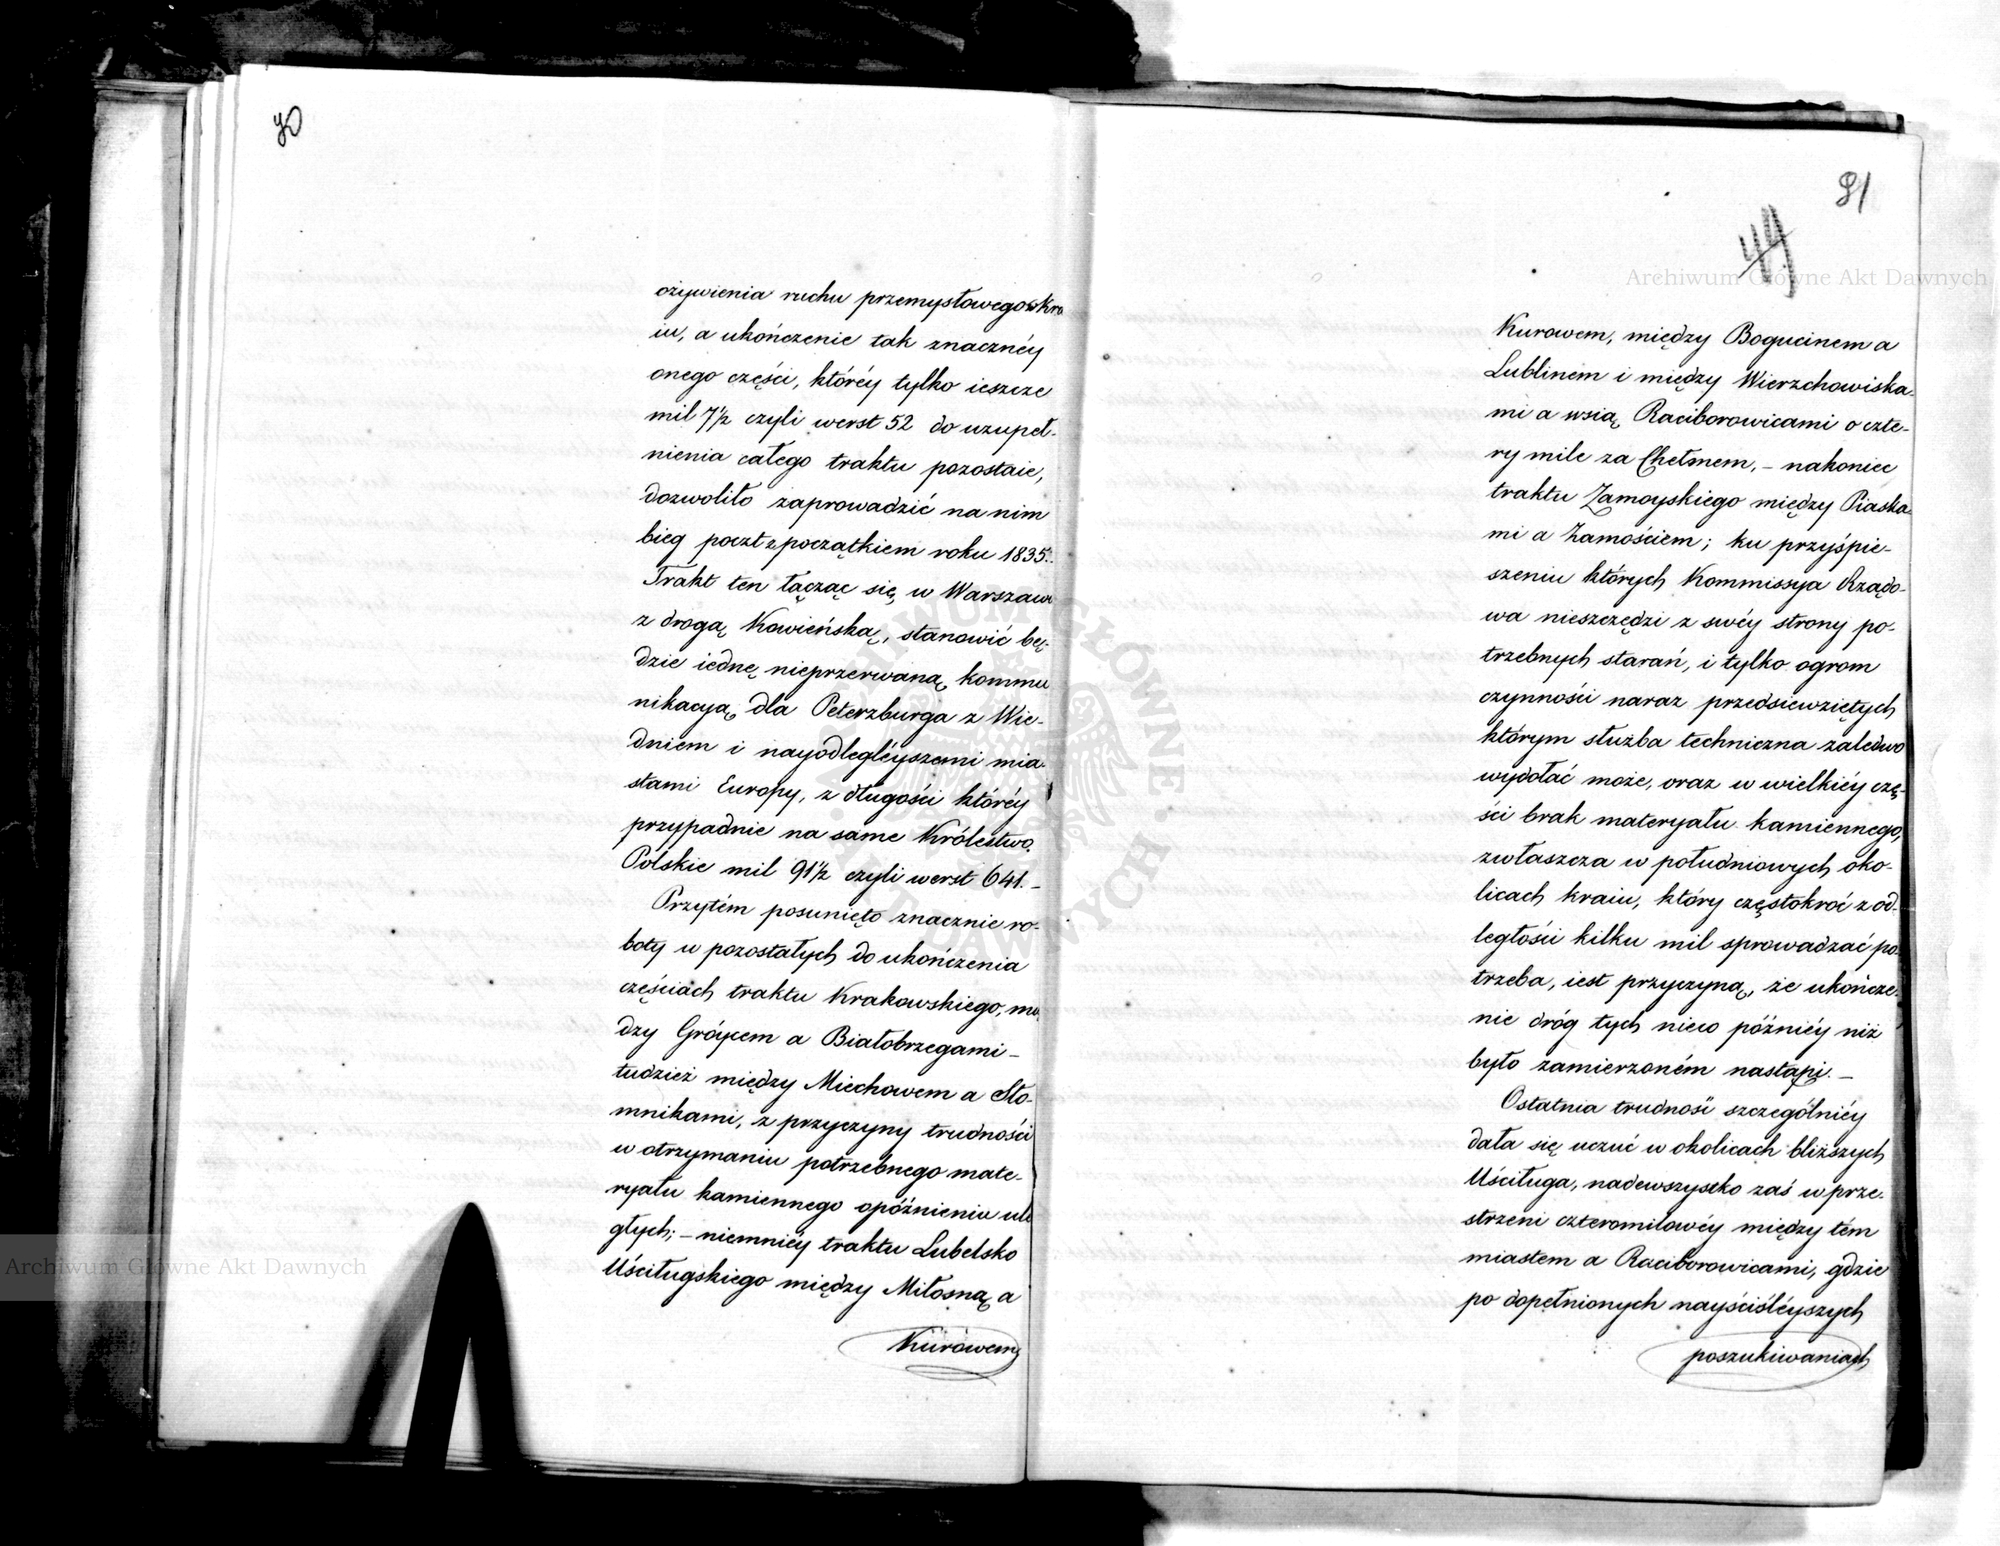 80
ożywienia ruchu przemysłowego w Kra
iu, a ukończenie tak znacznéy
onego części, któréy tylko ieszcze
mil 7½ czyli werst 52 do uzupeł-
nienia całego traktu pozostaie,
dozwoliło zaprowadzić na nim
bieg poczt z początkiem roku 1835.
Trakt ten łącząc się, w Warszawie
z drogą Kowieńską, stanowić bę-
dzie iednę nieprzerwaną kommu
nikacyą dla Peterzburga z Wie-
dniem i nayodlegléyszemi mia-
stami Europy, z długości któréy
przypadnie na same Królestwo
Polskie mil 91½ czyli werst 641. –
Przytém posunięto znacznie ro-
boty w pozostałych do ukończenia
częściach traktu Krakowskiego, mię
dzy Gróycem a Białobrzegami –
tudzież między Miechowem a Sło-
mnikami, z przyczyny trudności
w otrzymaniu potrzebnego mate-
ryału kamiennego opóźnieniu ule
głych; – niemniéy traktu Lubelsko
Uściługskiego między Miłosną a
Kurowem
81
44
Kurowem, między Bogucinem a
Lublinem i między Wierzchowiska-
mi a wsią Raciborowicami o czte-
ry mile za Chełmem, – nakoniec
traktu Zamoyskiego między Piaska-
mi a Zamościem; ku przyśpie-
szeniu których Kommissya Rządo-
wa nieszczędzi z swéy strony po-
trzebnych starań, i tylko ogrom
czynności naraz przedsiewziętych
którym służba techniczna zaledwo
wydołać może, oraz w wielkiéy czę-
ści brak materyału kamiennego,
zwłaszcza w południowych oko-
licach kraiu, który częstokroć z od-
ległości kilku mil sprowadzać po-
trzeba, iest przyczyną, że ukończe-
nie dróg tych nieco późniéy niż
było zamierzoném nastąpi. –
Ostatnia trudność szczególniéy
dała się uczuć w okolicach bliższych
Uściługa, nadewszystko zaś w prze-
strzeni czteromilowéy między tém
miastem a Raciborowicami, gdzie
po dopełnionych nayściśléyszych
poszukiwaniach
Archiwum Główne Akt Dawnych
Archiwum Główne Akt Dawnych
ARCHIWUM GŁÓWNE AKT DAWNYCH